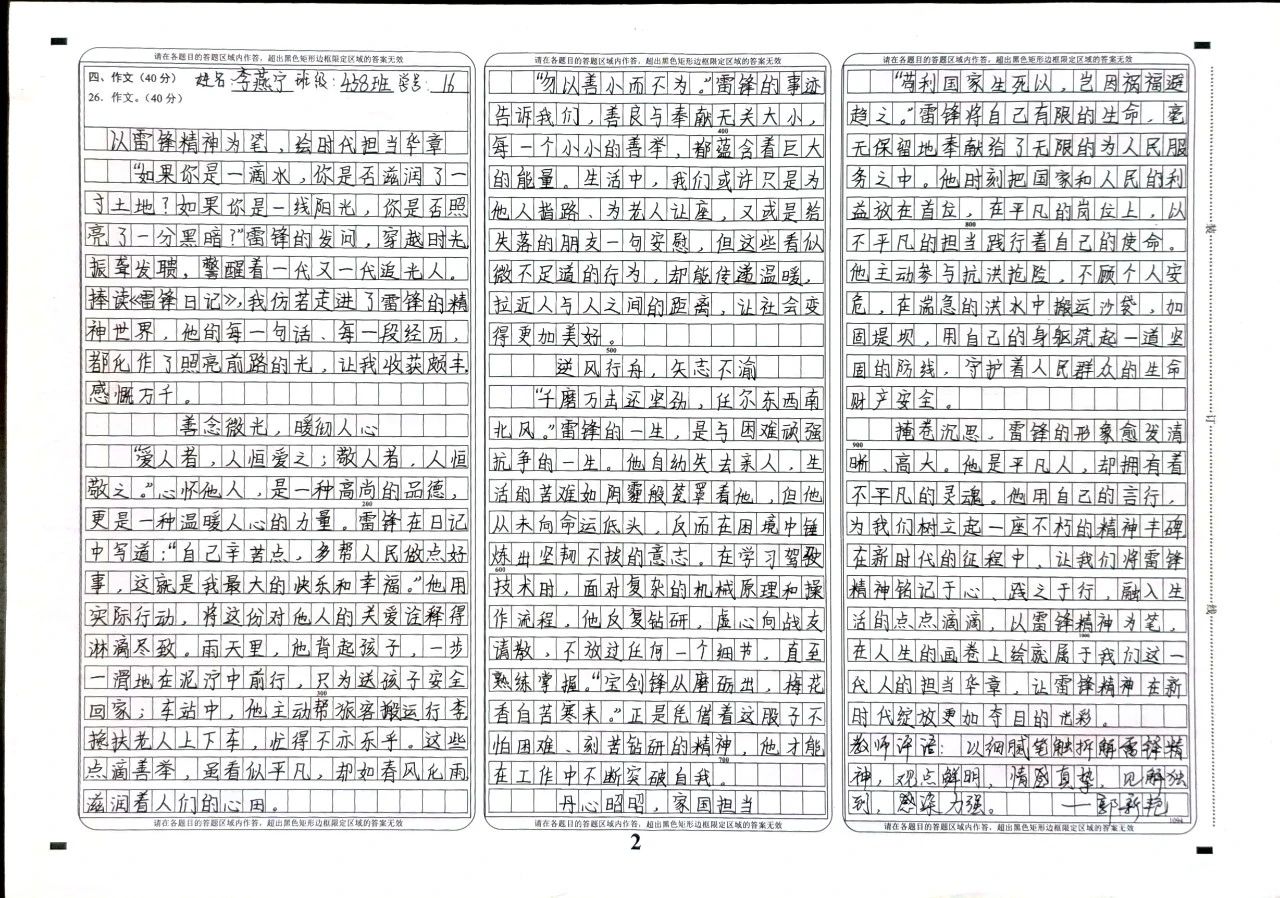 请在各题目的答题区域内作答，超出黑色矩形边框限定区域的答案无效
四、作文（40分） 姓名：李燕宁 班级：458班 学号：16
26. 作文。（40分）
以雷锋精神为笔，绘时代担当华章
“如果你是一滴水，你是否滋润了一
寸土地？如果你是一线阳光，你是否照
亮了一分黑暗？”雷锋的发问，穿越时光
振聋发聩，警醒着一代又一代追光人。
捧读《雷锋日记》，我仿若走进了雷锋的精
神世界，他的每一句话、每一段经历，
都化作了照亮前路的光，让我收获颇丰
感慨万千。
善念微光，暖彻人心
“爱人者，人恒爱之；敬人者，人恒
敬之。”心怀他人，是一种高尚的品德，
更是一种温暖人心的力量。雷锋在日记
200
中写道：“自己辛苦点，多帮人民做点好
事，这就是我最大的快乐和幸福。”他用
实际行动，将这份对他人的关爱诠释得
淋漓尽致。雨天里，他背起孩子，一步
一滑地在泥泞中前行，只为送孩子安全
300
回家；车站中，他主动帮旅客搬运行李
搀扶老人上下车，忙得不亦乐乎。这些
点滴善举，虽看似平凡，却如春风化雨
滋润着人们的心田。
请在各题目的答题区域内作答，超出黑色矩形边框限定区域的答案无效
请在各题目的答题区域内作答，超出黑色矩形边框限定区域的答案无效
“勿以善小而不为。”雷锋的事迹
告诉我们，善良与奉献无关大小，
400
每一个小小的善举，都蕴含着巨大
的能量。生活中，我们或许只是为
他人指路、为老人让座，又或是给
失落的朋友一句安慰，但这些看似
微不足道的行为，却能传递温暖，
拉近人与人之间的距离，让社会变
得更加美好。
500
逆风行舟，矢志不渝
“千磨万击还坚劲，任尔东西南
北风。”雷锋的一生，是与困难顽强
抗争的一生。他自幼失去亲人，生
活的苦难如阴霾般笼罩着他，但他
从未向命运低头，反而在困境中锤
炼出坚韧不拔的意志。在学习驾驶
600
技术时，面对复杂的机械原理和操
作流程，他反复钻研，虚心向战友
请教，不放过任何一个细节，直至
熟练掌握。“宝剑锋从磨砺出，梅花
香自苦寒来。”正是凭借着这股子不
怕困难、刻苦钻研的精神，他才能
700
在工作中不断突破自我。
丹心昭昭，家国担当
请在各题目的答题区域内作答，超出黑色矩形边框限定区域的答案无效
2
请在各题目的答题区域内作答，超出黑色矩形边框限定区域的答案无效
“苟利国家生死以，岂因祸福避
趋之。”雷锋将自己有限的生命，毫
无保留地奉献给了无限的为人民服
务之中。他时刻把国家和人民的利
益放在首位，在平凡的岗位上，以
800
不平凡的担当践行着自己的使命。
他主动参与抗洪抢险，不顾个人安
危，在湍急的洪水中搬运沙袋，加
固堤坝，用自己的身躯筑起一道坚
固的防线，守护着人民群众的生命
财产安全。
掩卷沉思，雷锋的形象愈发清
900
晰、高大。他是平凡人，却拥有着
不平凡的灵魂。他用自己的言行，
为我们树立起一座不朽的精神丰碑
在新时代的征程中，让我们将雷锋
精神铭记于心、践之于行，融入生
活的点点滴滴，以雷锋精神为笔，
1000
在人生的画卷上绘就属于我们这一
代人的担当华章，让雷锋精神在新
时代绽放更加夺目的光彩。
教师评语：以细腻笔触拆解雷锋精
神，观点鲜明，情感真挚，见解独
到，感染力强。 ——郭新艳
1094
请在各题目的答题区域内作答，超出黑色矩形边框限定区域的答案无效
装
订
线